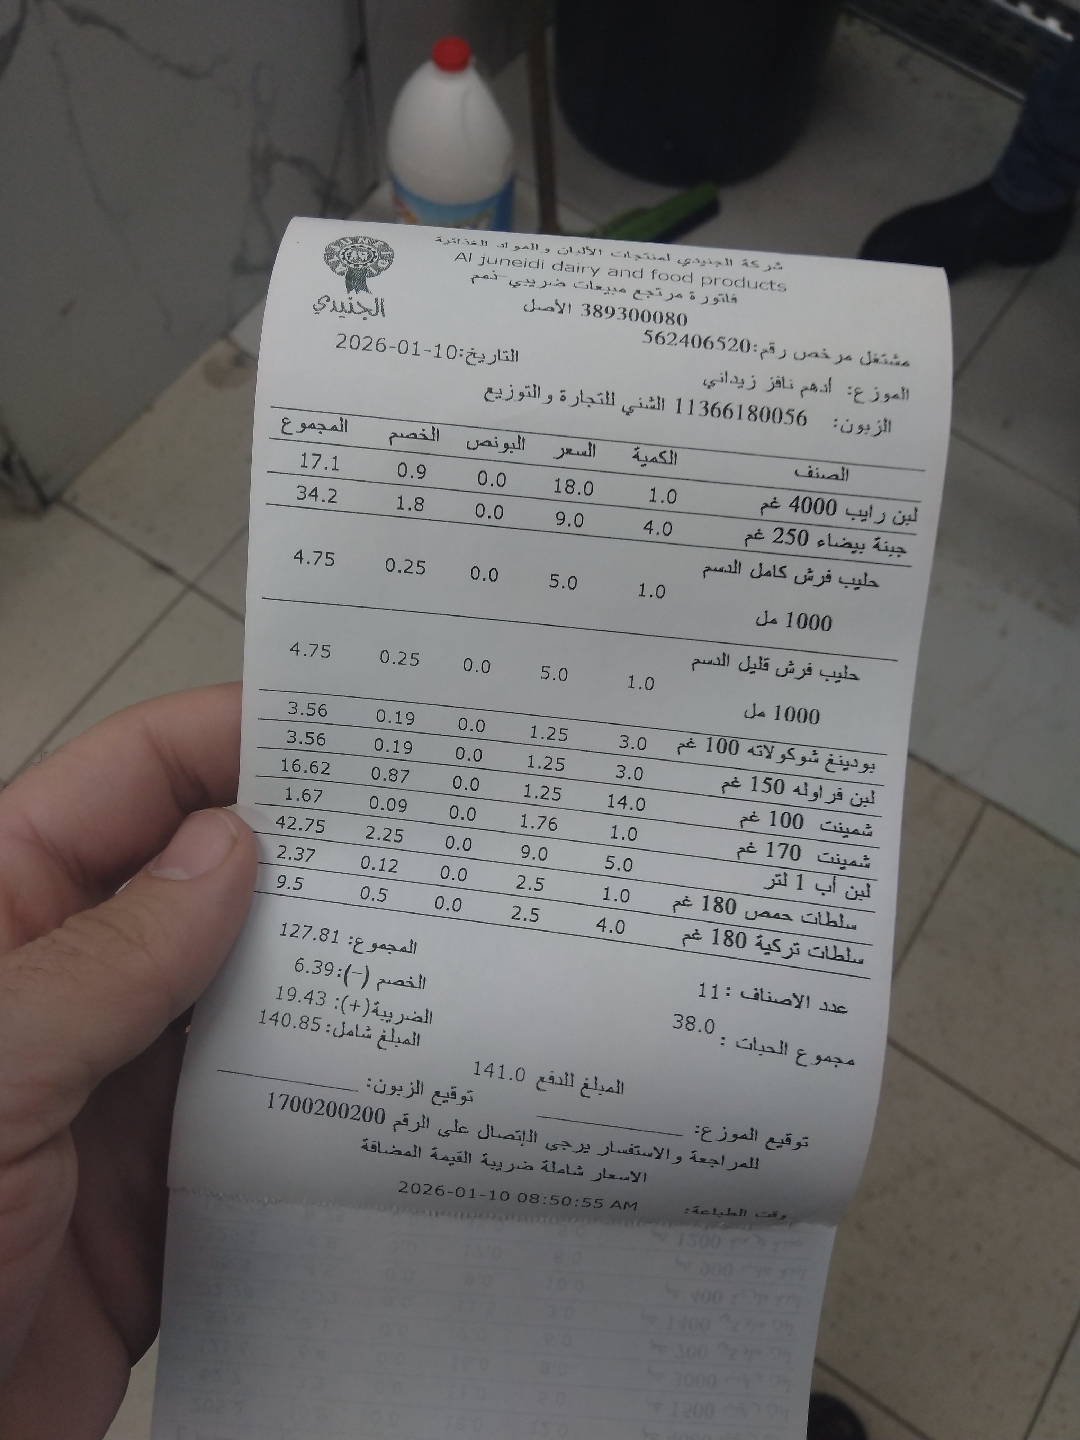 شركة الجنيدي لمنتجات الألبان والمواد الغذائية
Al juneidi dairy and food products
الجنيدي
فاتورة مرتجع مبيعات ضريبي-ذمم
389300080 الأصل
مشتغل مرخص رقم:562406520
التاريخ:2026-01-10
الموزع: أدهم نافز زيداني
الزبون: 11366180056 الشني للتجارة والتوزيع
الصنف الكمية السعر البونص الخصم المجموع
لبن رايب 4000 غم 1.0 18.0 0.0 0.9 17.1
جبنة بيضاء 250 غم 4.0 9.0 0.0 1.8 34.2
حليب فرش كامل الدسم 1.0 5.0 0.0 0.25 4.75
1000 مل
حليب فرش قليل الدسم 1.0 5.0 0.0 0.25 4.75
1000 مل
بودينغ شوكولاته 100 غم 3.0 1.25 0.0 0.19 3.56
لبن فراوله 150 غم 3.0 1.25 0.0 0.19 3.56
شمينت 100 غم 14.0 1.25 0.0 0.87 16.62
شمينت 170 غم 1.0 1.76 0.0 0.09 1.67
لبن أب 1 لتر 5.0 9.0 0.0 2.25 42.75
سلطات حمص 180 غم 1.0 2.5 0.0 0.12 2.37
سلطات تركية 180 غم 4.0 2.5 0.0 0.5 9.5
المجموع: 127.81
عدد الاصناف : 11 الخصم (-):6.39
مجموع الحبات : 38.0 الضريبة(+): 19.43
المبلغ شامل: 140.85
المبلغ للدفع 141.0
توقيع الموزع: توقيع الزبون:
للمراجعة والاستفسار يرجى الإتصال على الرقم 1700200200
الاسعار شاملة ضريبة القيمة المضافة
وقت الطباعة: 2026-01-10 08:50:55 AM